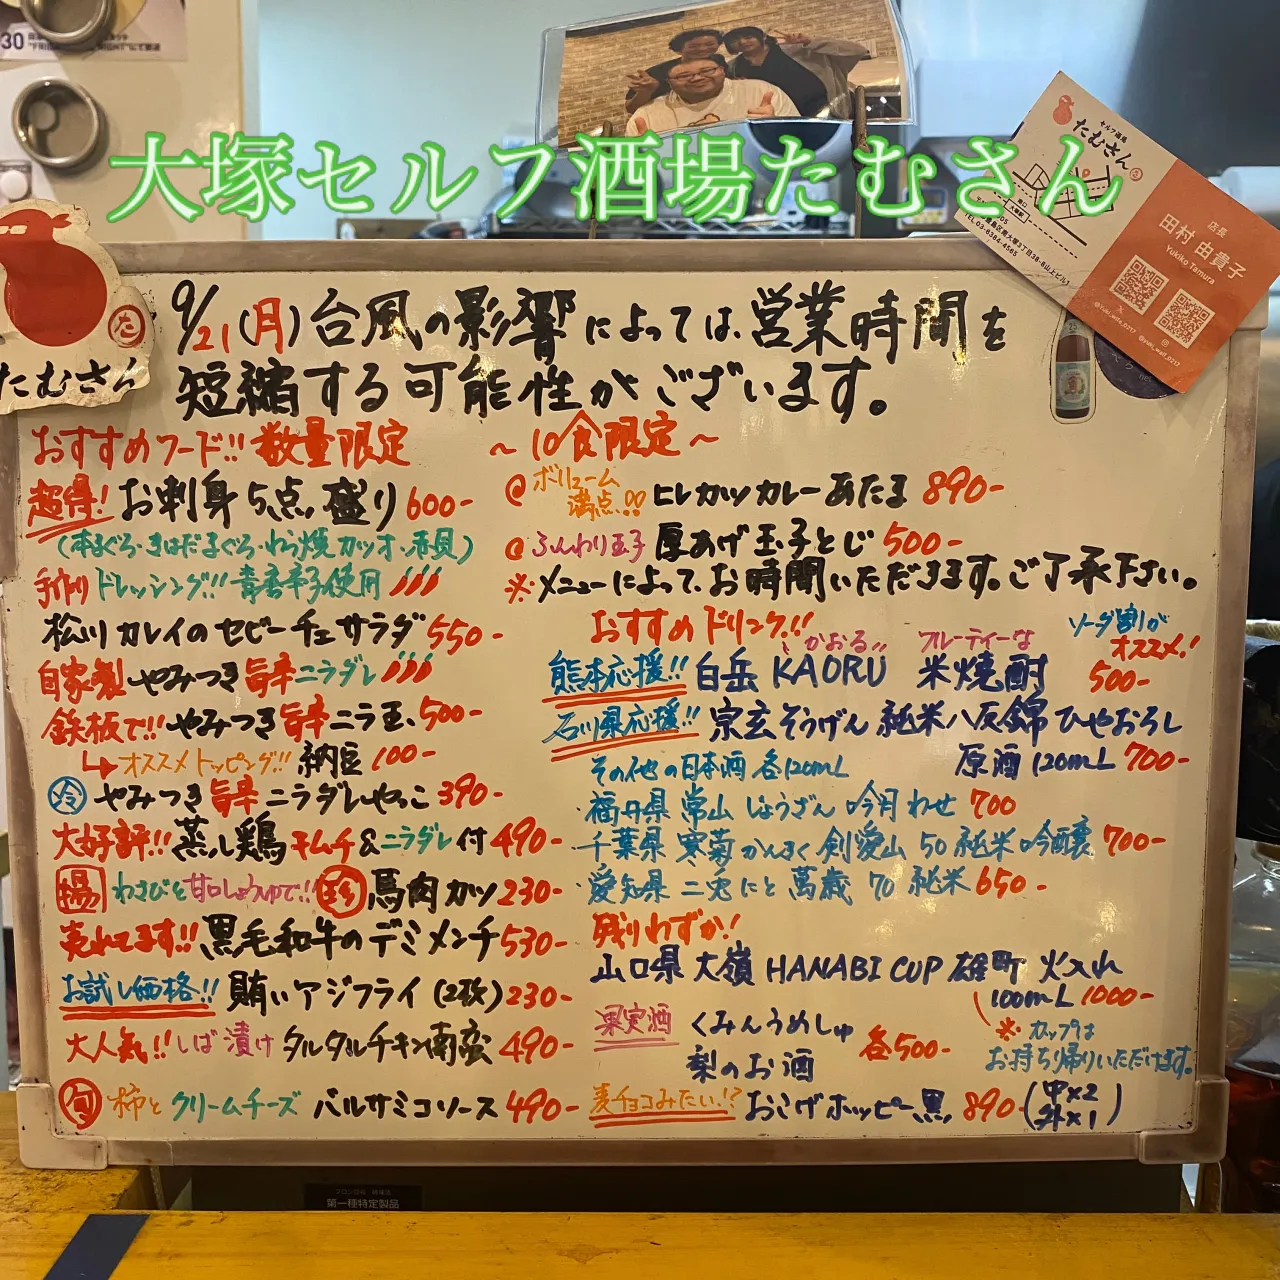 大塚セルフ酒場たむさん
セルフ酒場
たむさん
店長
田村 由貴子
Yukiko Tamura
TEL 03-6384-4565
@yuki_wolf_0217
たむさん
9/21(月)台風の影響によっては、営業時間を
短縮する可能性がございます。
おすすめフード!! 数量限定
超得! お刺身5点盛り 600-
(本まぐろ・きはだまぐろ・わら焼カツオ・赤貝)
手作りドレッシング!! 青唐辛子使用
松川カレイのセビーチェサラダ 550-
自家製 やみつき旨辛ニラダレ
鉄板で!! やみつき旨辛ニラ玉 500-
オススメトッピング!! 納豆 100-
冷 やみつき旨辛ニラダレやっこ 390-
大好評!! 蒸し鶏キムチ&ニラダレ付 490-
揚 わさびと甘口しょうゆで!! 珍 馬肉カツ 230-
売れてます!! 黒毛和牛のデミメンチ 530-
お試し価格!! 賄いアジフライ(2枚) 230-
大人気!! しば漬けタルタルチキン南蛮 490-
旬 柿とクリームチーズ バルサミコソース 490-
〜10食限定〜
@ ボリューム満点!! ヒレカツカレーあたま 890-
@ ふんわり玉子 厚あげ玉子とじ 500-
※メニューによって、お時間いただきます。ご了承下さい。
おすすめドリンク!!
ソーダ割がオススメ!
かおる フルーティーな
熊本応援!! 白岳 KAORU 米焼酎 500-
石川県応援!! 宗玄そうげん 純米八反錦ひやおろし
原酒 120mL 700-
その他の日本酒 各120mL
・福井県 常山 じょうざん 吟月 わせ 700
・千葉県 寒菊 かんきく 剣愛山 50 純米吟醸 700-
・愛知県 二兎 にと 萬歳 70 純米 650-
残りわずか!
山口県 大嶺 HANABI CUP 雄町 火入れ
100mL 1000-
※カップはお持ち帰りいただけます。
果実酒 くみんうめしゅ
梨のお酒
各500-
麦チョコみたい!? おこげホッピー黒 890-(中×2 外×1)
第一種特定製品